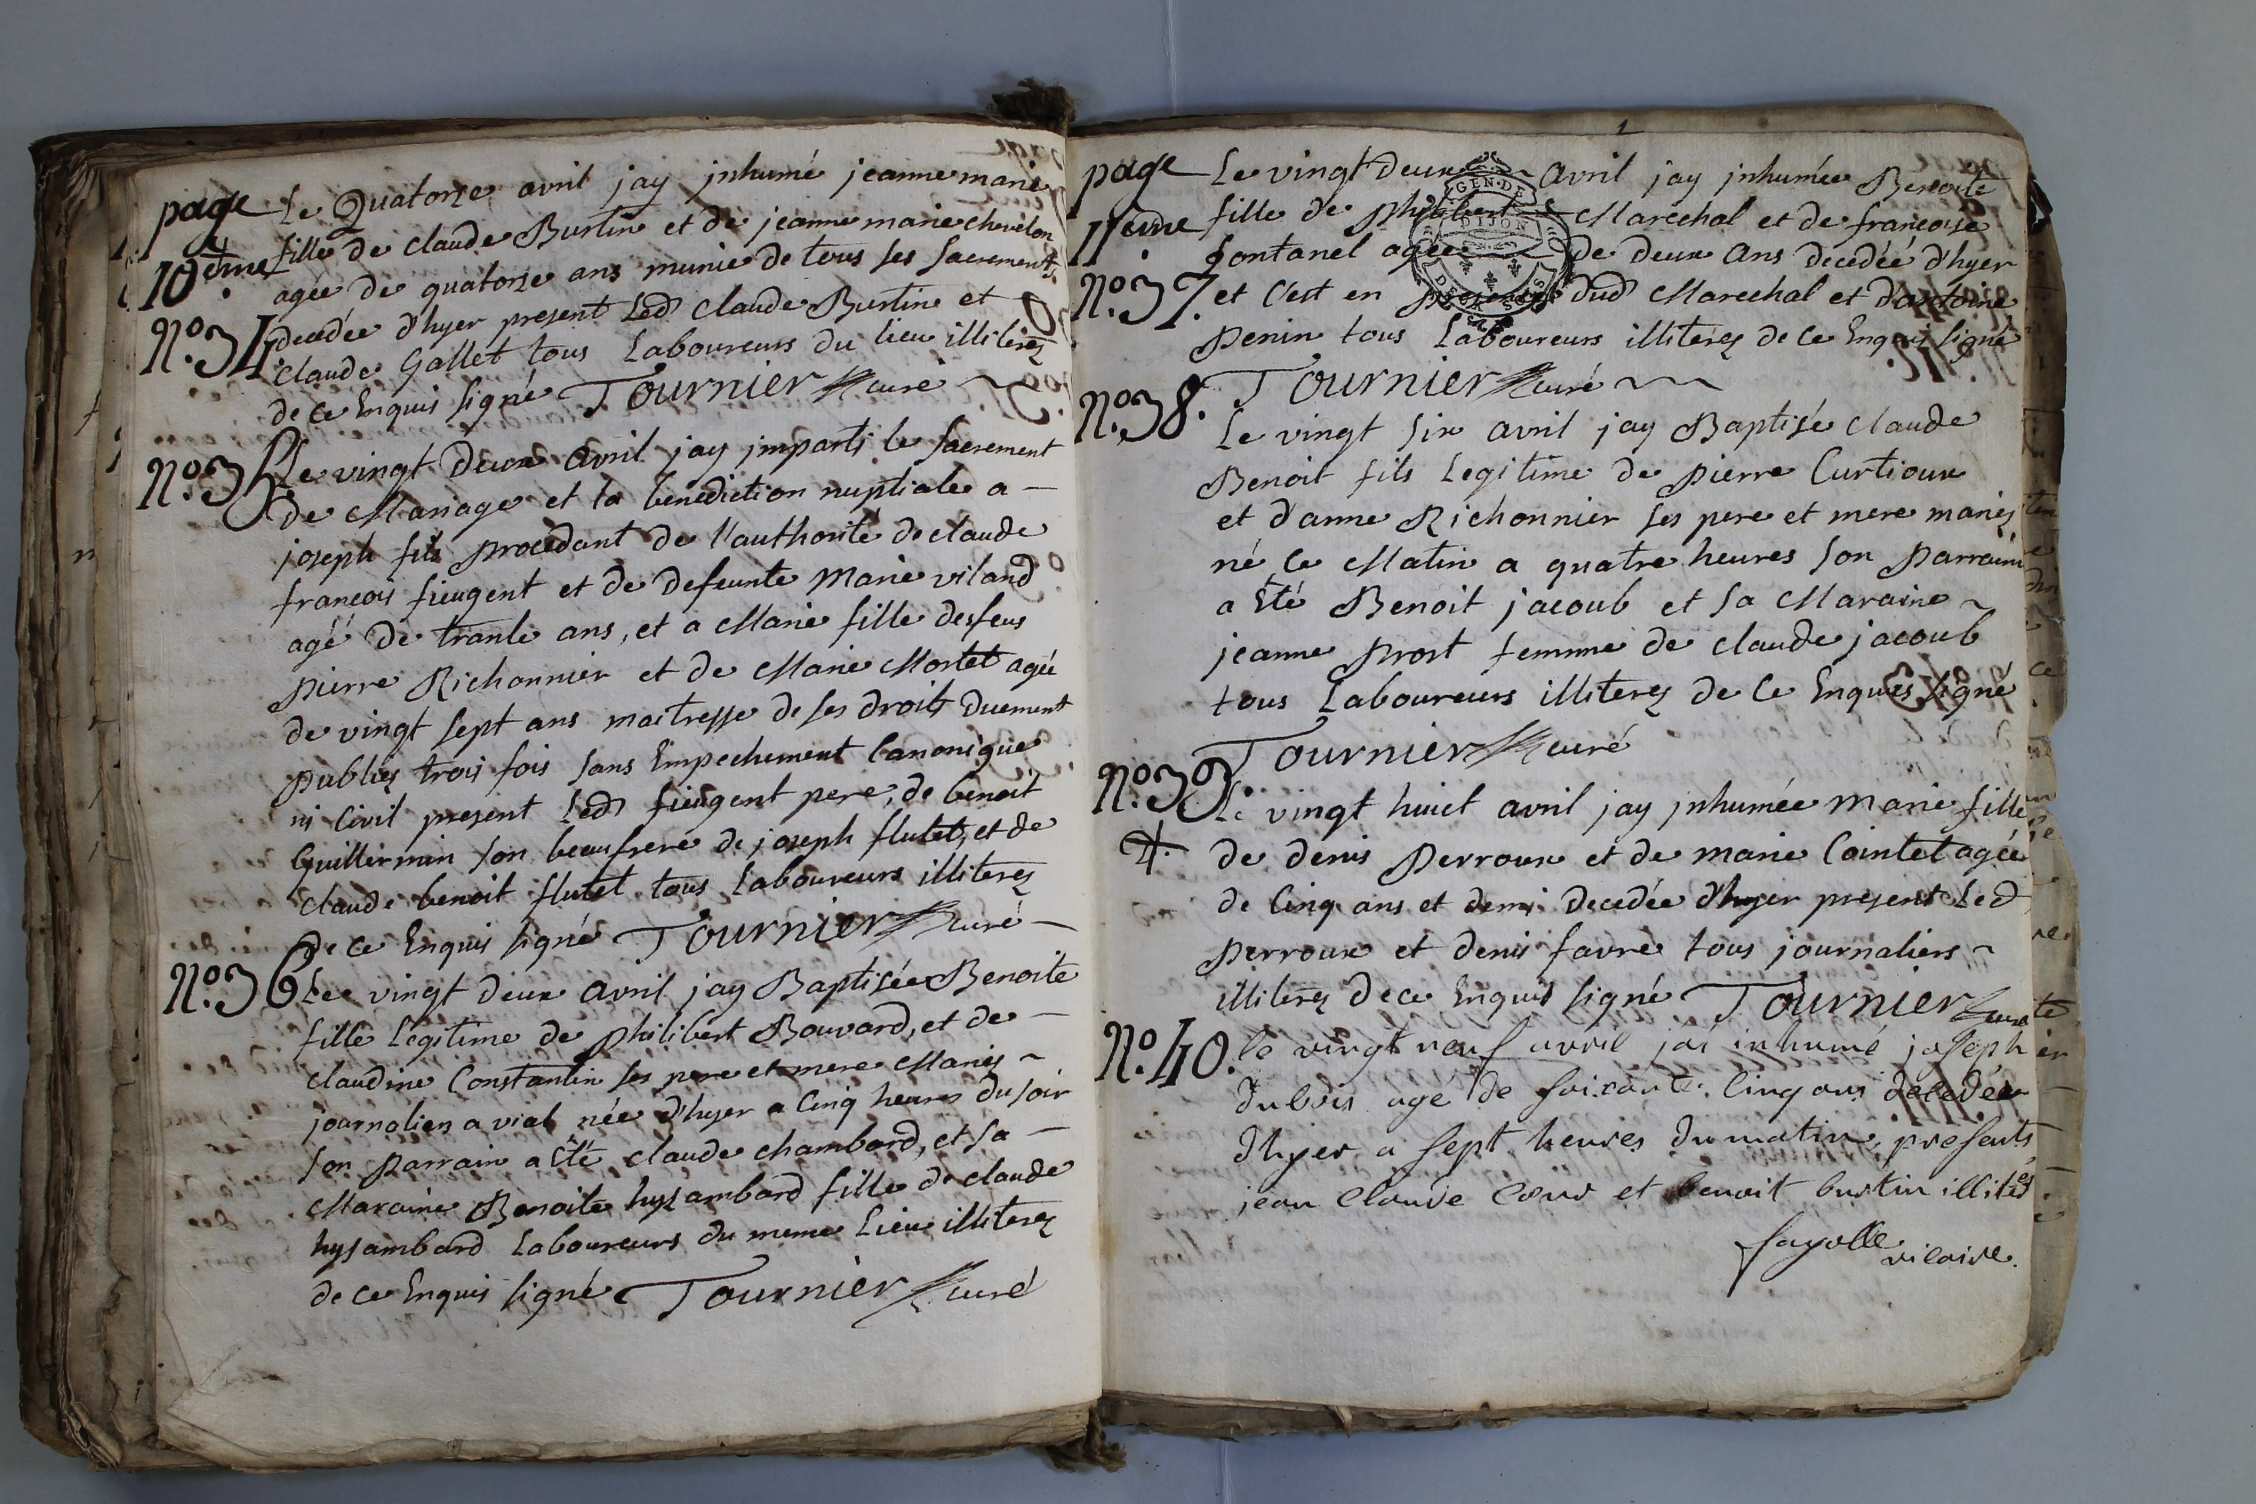 page
10eme
N.o 34
Le Quatorze avril jay jnhumé jeanne marie
fille de claude Burtin et de jeanne marie chevelon
agée de quatorze ans munie de tous ses sacrements
decedée d'hyer present Led claude Burtin et
claude Gallet tous Laboureurs du lieu illiterez
de ce Enquis signé Tournier curé
N.o 35
Le vingt deux avril jay jmparti le sacrement
de Mariage et la benediction nuptiale a
joseph fils procedant de l'authorité de claude
françois fieugent et de defeunte Marie viland
agé de trante ans, et a Marie fille desfeus
pierre Richonnier et de Marie Mortet agée
de vingt sept ans maitresse de ses droits duement
publiez trois fois sans Empechement Canonique
ni Civil present Led fieugent pere, de benoit
Guillermin son beaufrere de joseph flutet, et de
claude benoit flutet tous Laboureurs illiterez
de ce Enquis signé Tournier curé
N.o 36
Le vingt deux avril jay Baptisée Benoite
fille Legitime de philibert Bouvard, et de
claudine Constantin ses pere et mere Mariés
journalier a vial née d'hyer a Cinq heures du soir
son parrain a Eté claude chambard, et sa
Maraine Benoite hysambard fille de claude
hysambard Laboureurs du meme Lieu illiterez
de ce Enquis signé Tournier curé
page
11eme
N.o 37.
Le vingt deux avril jay jnhumée Benoite
fille de philibert Marechal et de francoise
fontanel agée de deux ans decedée d'hyer
et c'est en presence dud Marechal et d'antoine
penin tous Laboureurs illiterez de ce Enquis signé
Tournier curé
GEN. DE
DIJON
DEUX SOLS
N.o 38.
Le vingt six avril jay Baptisé claude
Benoit fils Legitime de pierre Curtioux
et d'anne Richonnier ses pere et mere mariés
né ce Matin a quatre heures son parrain
a Eté Benoit jacoub et sa Maraine
jeanne prost femme de claude jacoub
tous Laboureurs illiterez de ce Enquis signé
Tournier curé
N.o 39.
Le vingt huict avril jay jnhumée marie fille
de denis perroux et de marie Cointet agée
de Cinq ans et demi decedée d'hyer present Led
perroux et denis favre tous journaliers
illiterez de ce Enquis signé Tournier curé
N.o 40.
le vingt neuf avril jai inhumé joseph
dubois agé de soixante: Cinq ans decedée
d'hyer a sept heures du matin, presents
jean Claude et benoit burtin illités
fayolle vicaire.